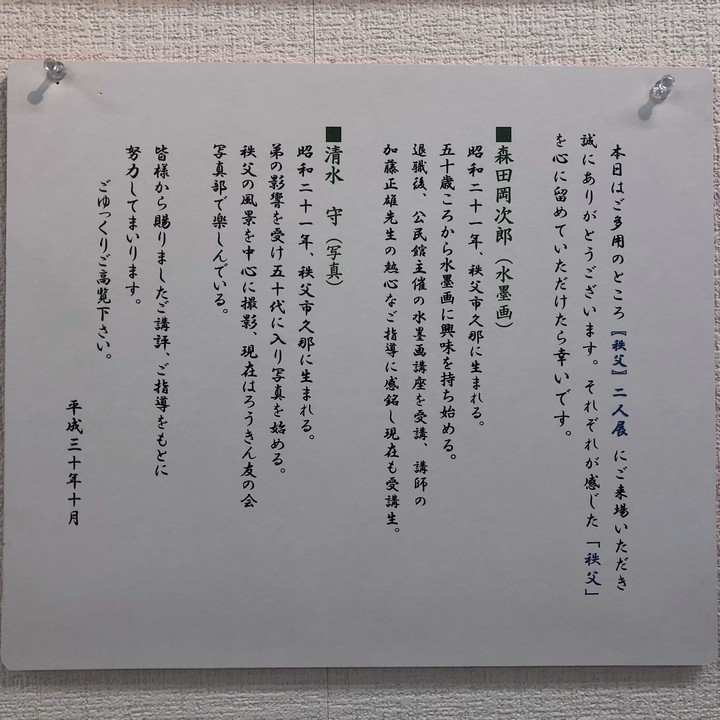 本日はご多用のところ『秩父』二人展 にご来場いただき
誠にありがとうございます。それぞれが感じた「秩父」
を心に留めていただけたら幸いです。
■森田岡次郎（水墨画）
昭和二十一年、秩父市久那に生まれる。
五十歳ころから水墨画に興味を持ち始める。
退職後、公民館主催の水墨画講座を受講、講師の
加藤正雄先生の熱心なご指導に感銘し現在も受講生。
■清水 守（写真）
昭和二十一年、秩父市久那に生まれる。
弟の影響を受け五十代に入り写真を始める。
秩父の風景を中心に撮影、現在はろうきん友の会
写真部で楽しんでいる。
皆様から賜りましたご講評、ご指導をもとに
努力してまいります。
ごゆっくりご高覧下さい。
平成三十年十月